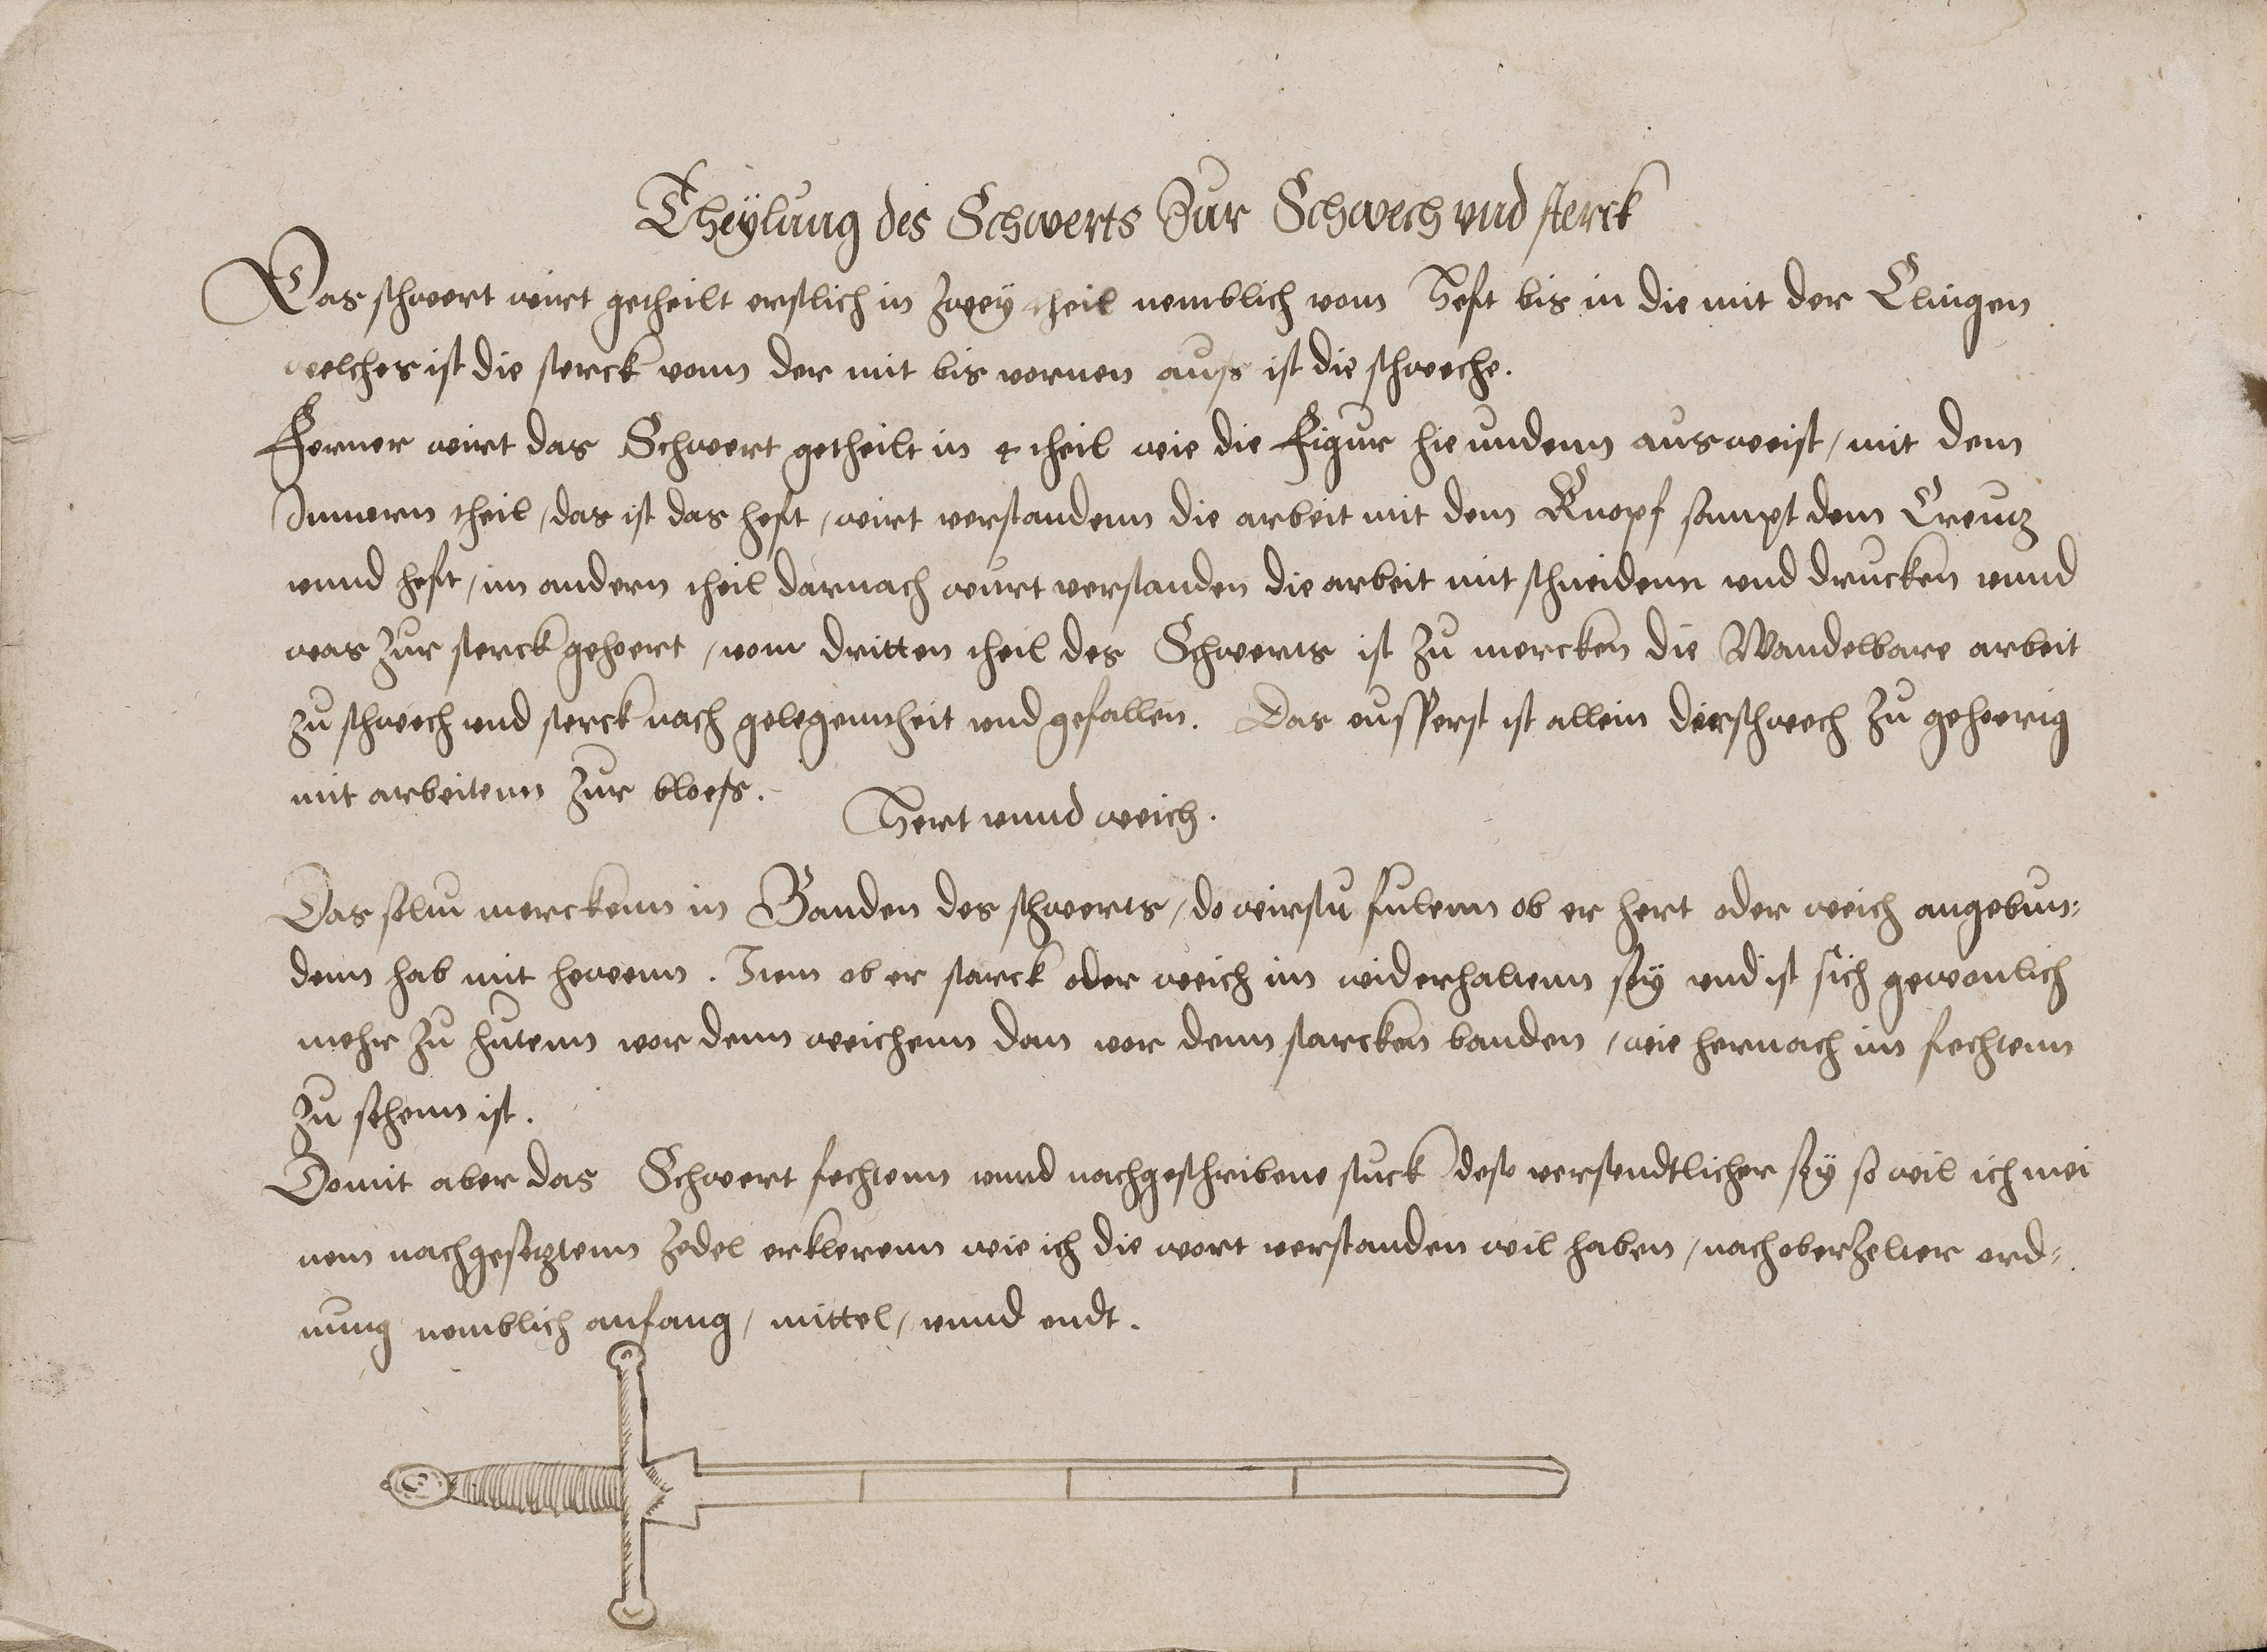 Theÿlung des Schwerts Zur Schwech vnd sterck
Das schwert wirt getheilt erstlich in zweÿ theil nemblich vom Heft bis in die mit der Clingen
welches ist die sterck vonn der mit bis vornen auss ist die schweche.
Ferner wirt das Schwert getheilt in 4 theil wie die Figur hie undenn ausweist / mit dem
Innnern theil / das ist das heft / wirt verstandenn die arbeit mit dem Knopf sampt dem Creutz
vnnd heft / im andern theil darnach wurt verstanden die arbeit mit schneidenn vnd drucken vnnd
was zur sterck gehoert / vom dritten theil des Schwerts ist zu mercken die Wandelbare arbeit
zu schwech vnd sterck nach gelegenntheit vnd gefallen. Das eusserst ist allein der schwech zu gehoerig
mit arbeitenn zur bloess.
Hert vnnd weich.
Das soltu merckenn in Banden des schwerts / do wirstu fulenn ob er hert oder weich angebun:
denn hab mit hewenn. Item ob er starck oder weich im widerhaltenn seÿ vnd ist sich gewonlich
mehr zu hutenn vor denn weichenn dan vor denn starcken banden / wie hernach im fechtenn
zu sehenn ist.
Domit aber das Schwert fechtenn vnnd nachgeschribene stuck dest verstendtlicher seÿ so wil ich mei
nem nachgesetztenn Zedel erklerenn wie ich die wort verstanden wil haben / nach oberzelter ord:
nung nemblich anfang / mittel / vnnd endt.